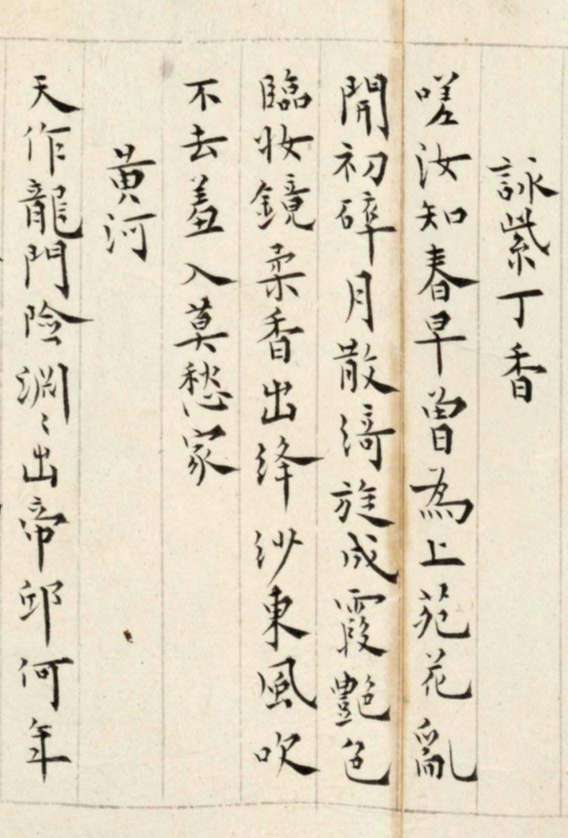 詠紫丁香
嗟汝知春早曾為上苑花亂
開初碎月散綺旋成霞艷色
臨妝鏡柔香出絳紗東風吹
不去羞入莫愁家
黃河
天作龍門險淵〻出帝邱何年